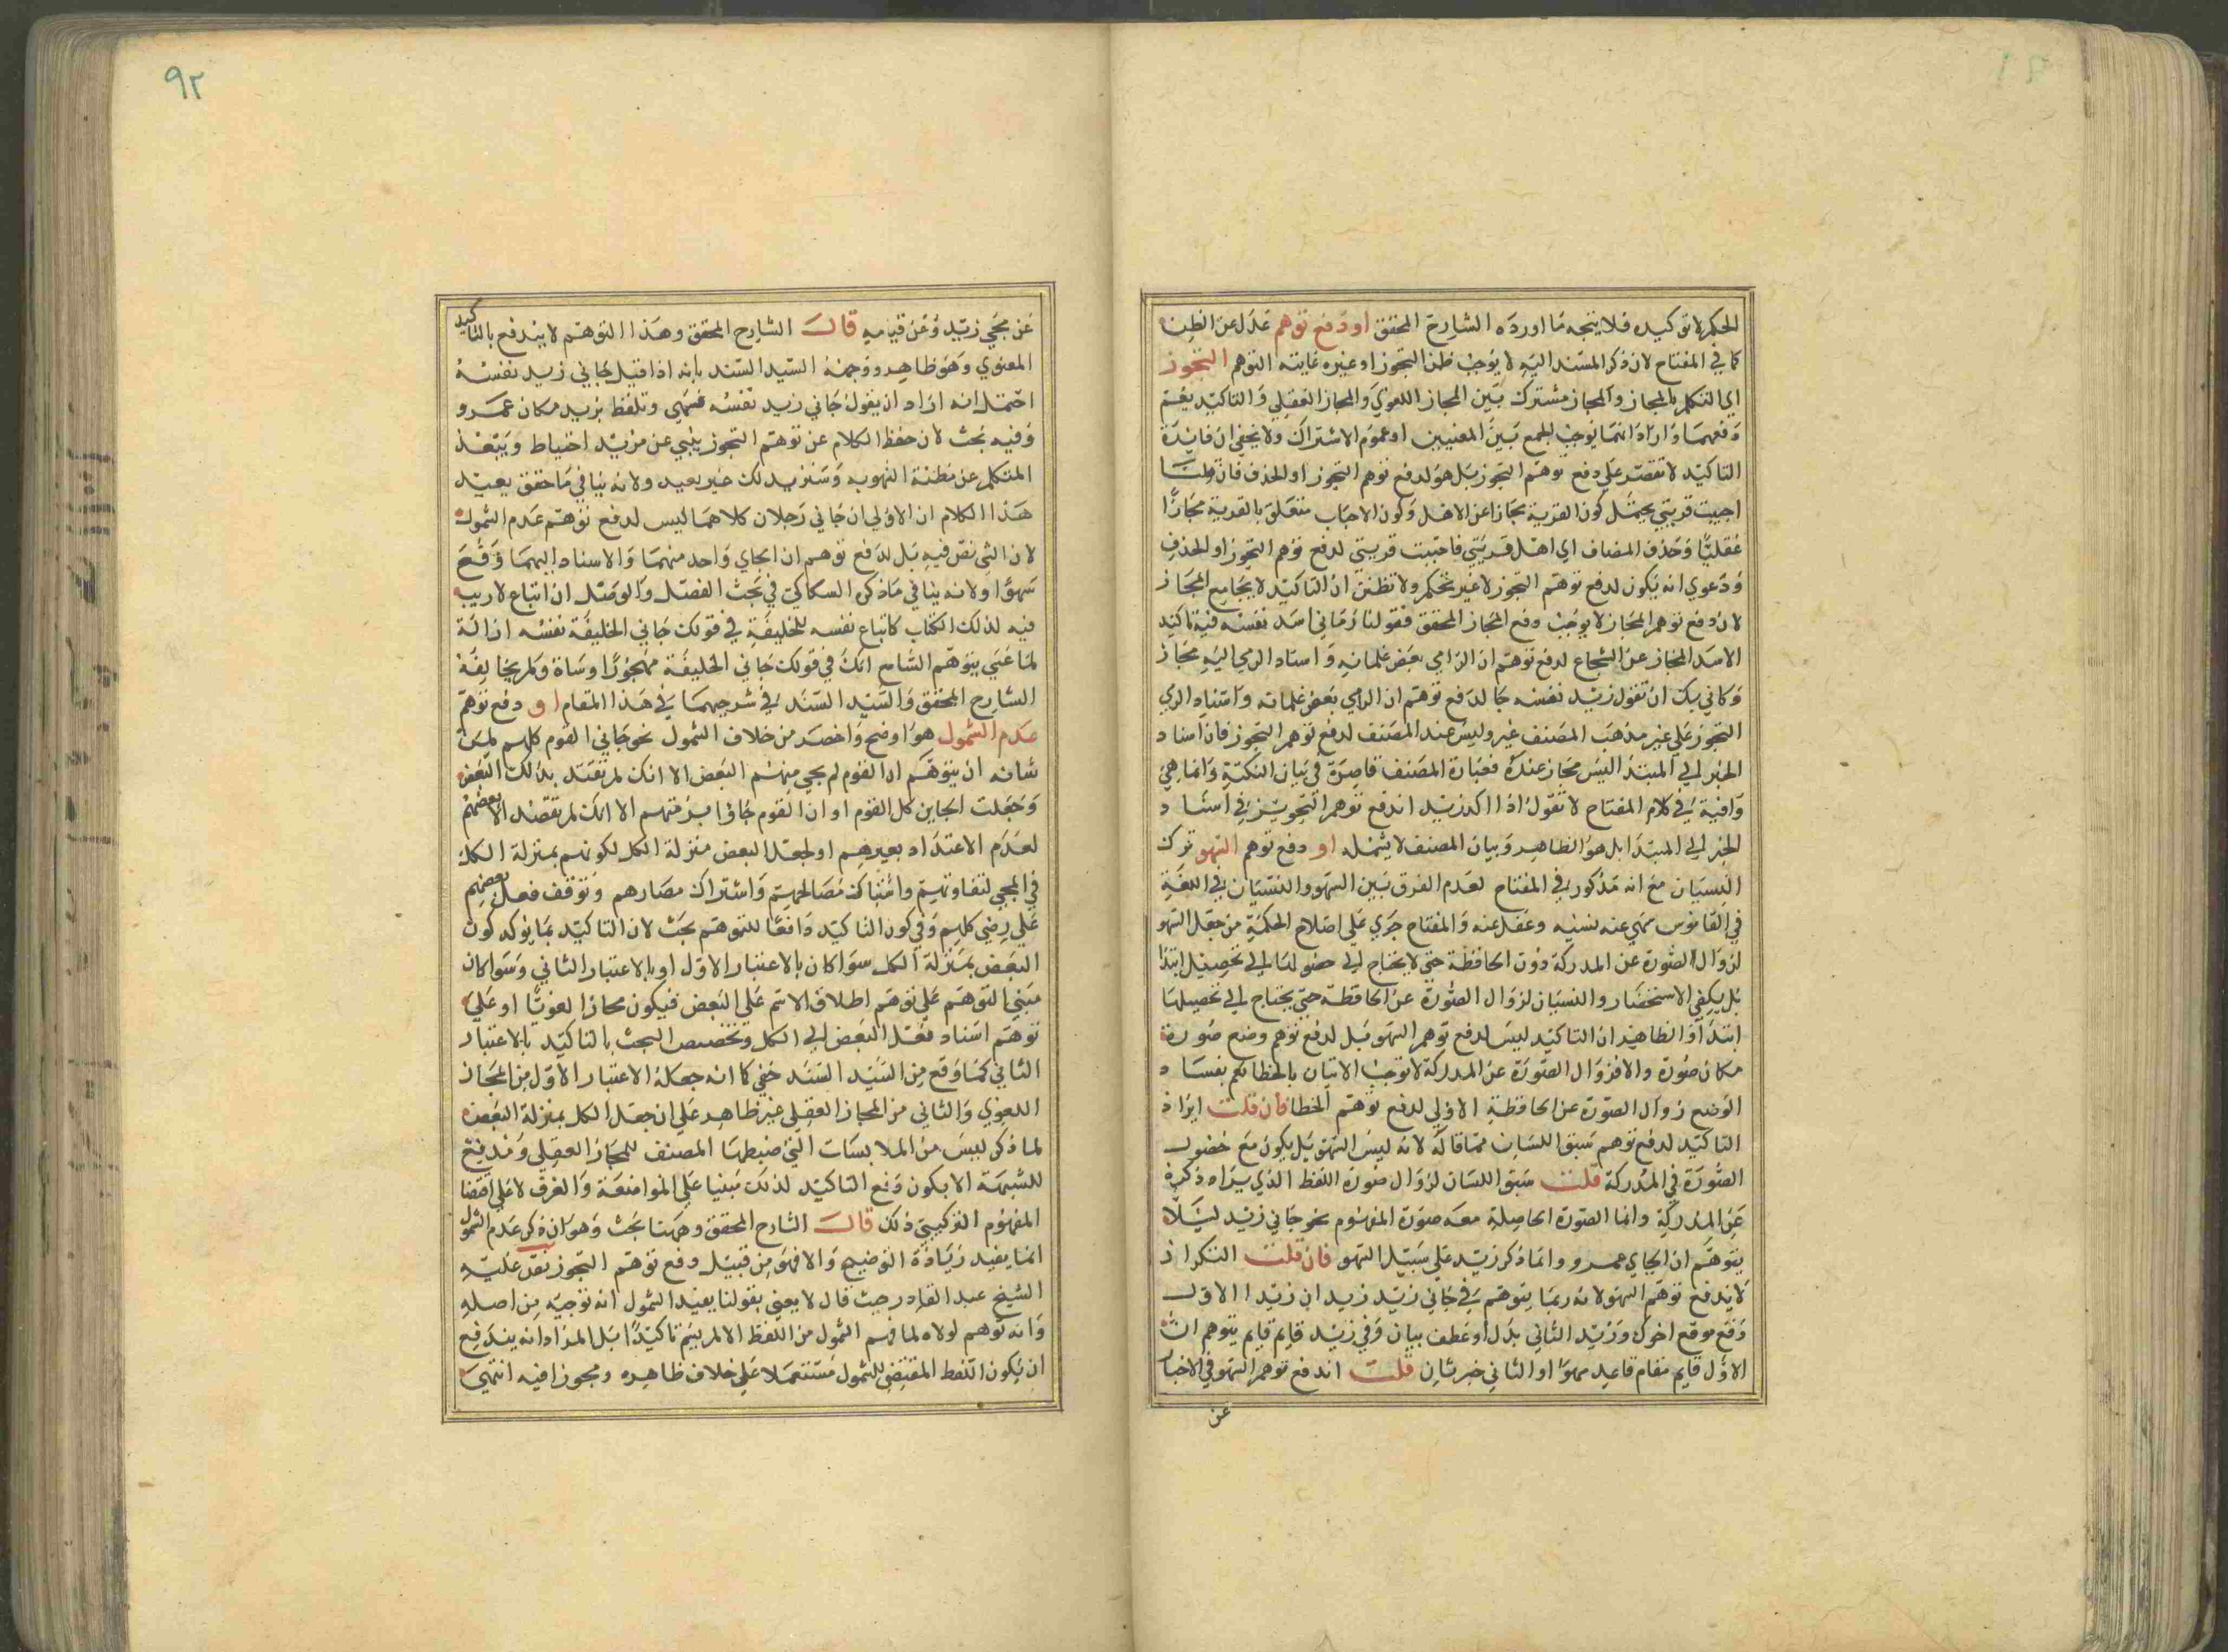 الحكم لا توكيده فلا يتجه ما اورده الشارح المحقق او دفع توهم عدل عن الظن
كما في المفتاح لان ذكر المسند اليه لا يوجب ظن التجوز او غيره غايته التوهم التجوز
اي التكلم بالمجاز والمجاز مشترك بين المجاز اللغوي والمجاز العقلي والتاكيد يعم
دفعهما وارادتهما يوجب الجمع بين المعنيين او عموم الاشتراك ولا يخفى ان فايدة
التاكيد لا تقتصر على دفع توهم التجوز بل هو لدفع توهم التجوز او الحذف فان قلنا
اجيبت قريتي يحتمل كون القرية مجازا عن الاهل وكون الاجاب متعلق بالقرية مجازا
عقليا وحذف المضاف اي اهل قريتي فاجيبت قريتي لدفع توهم التجوز او الحذف
ودعوي انه يكون لدفع توهم التجوز لا غير تحكم ولا تظنن ان التاكيد لا يجامع المجاز
لان دفع توهم المجاز لا يوجب دفع المجاز المحقق فقولنا رماني اسد نفسه فيه تاكيد
الاسد المجاز عن الشجاع لدفع توهم ان الرامي بعض غلمانه واسناد الرمي اليه مجاز
وكاني بك ان تقول زيد نفسه جا لدفع توهم ان الرامي بعض غلمانه واسناد الرمي
التجوز على غير مذهب المصنف غير وليس عند المصنف لدفع توهم التجوز فان اسناد
الخبر الي المبتدا ليس مجاز عنده فعبارة المصنف قاصرة في بيان النكتة وانما هي
وافية في كلام المفتاح لا تقول اذا اكد زيد اندفع توهم التجويز في اسناد
الخبر الي المبتدا بل هو الظاهر وبيان المصنف لا يشمله او دفع توهم السهو ترك
النسيان مع انه مذكور في المفتاح لعدم الفرق بين السهو والنسيان في اللغة
في القاموس سهي عنه نسيه وغفل عنه والمفتاح جري على اصلاح الحكمة من جعل السهو
لزوال الصورة عن المدركة دون الحافظة حتي لا يحتاج الي تحصيل ابتدا
بل يكفي الاستحضار والنسيان لزوال الصورة عن الحافظة حتي يحتاج الي تحصيلها
ابتدا والظاهر ان التاكيد ليس لدفع توهم السهو بل لدفع توهم وضع صورة
مكان صورة والا فزوال الصورة عن المدركة لا توجب الاتيان بالخطا نعم بفساد
الوضع زوال الصورة عن الحافظة الاولي لدفع توهم الخطا فان قلت ايراد
التاكيد لدفع توهم سبق اللسان مما قاله لانه ليس السهو بل يكون مع حضور
الصورة في المدركة قلت سبق اللسان لزوال صورة اللفظ الذي يراد ذكره
عن المدركة وانما الصورة الحاصلة معه صورة المفهوم نحو جاني زيد ليلا
يتوهم ان الجاي عمرو وانما ذكر زيد على سبيل السهو فان قلت التكرار
لا يدفع توهم السهو لانه ربما يتوهم في جاني زيد زيد ان زيد الاول
وقع موقع اخوك وزيد الثاني بدل او عطف بيان وفي زيد قايم قايم يتوهم ان
الاول قايم مقام قاعد سهوا او الثاني خبر ثان قلت اندفع توهم السهو في الاخبار
عن
٩٢
عن مجي زيد وعن قيامه قال الشارح المحقق وهذا التوهم لا يندفع بالتاكيد
المعنوي وهو ظاهر ووجهه السيد السند بانه اذا قيل جاني زيد نفسه
احتمل انه اراد ان يقول جاني زيد نفسه فسهي وتلفظ بزيد مكان عمرو
وفيه بحث لان حفظ الكلام عن توهم التجوز ينبي عن مزيد احتياط ويبعد
المتكلم عن مظنة السهو به وسنزيدلك خير بعيد ولانه ينافي ما حقق بعيد
هذا الكلام ان الاولي ان جاني رجلان كلاهما ليس لدفع توهم عدم الشمول
لان المثنى نص فيه بل لدفع توهم ان الجاي واحد منهما والاسناد اليهما وقع
سهوا ولانه ينافي ما ذكره السكاكي في بحث الفصل والوصل ان اتباع لا ريب
فيه لذلك الكتاب كاتباع نفسه للخليفة في قولك جاني الخليفة نفسه ازالة
لما عسي يتوهم السامع انك في قولك جاني الخليفة متجوزا وساه ولم يخالفه
الشارح المحقق والسيد السند في شرحيهما في هذا المقام او دفع توهم
عدم الشمول هو اوضح واخصر من خلاف الشمول نحو جاني القوم كلهم لمن
شانه ان يتوهم ان القوم لم يجي منهم البعض الا انك لم تعتد بذلك البعض
وجعلت الجاين كل القوم او ان القوم جاوا بزمتهم الا انك لم تقصد الا بعضهم
لعدم الاعتداد بغيرهم او لجعل البعض منزلة الكل لكونهم بمنزلة الكل
في المجي لتفاوتهم واشتباك مصالحهم واشتراك مضارهم وتوقف فعل بعضهم
على رضي كلهم وفي كون التاكيد دافعا للتوهم بحث لان التاكيد بما يوكد كون
البعض بمنزلة الكل سوا كان بالاعتبار الاول او بالاعتبار الثاني وسوا كان
مبني التوهم على توهم اطلاق الاسم على البعض فيكون مجازا لغويا او على
توهم اسناد فعل البعض الي الكل وتخصيص البحث بالتاكيد بالاعتبار
الثاني كما وقع من السيد السند خفي كما انه جعله الاعتبار الاول من المجاز
اللغوي والثاني من المجاز العقلي غير ظاهر على ان جعل الكل بمنزلة البعض
لما ذكر ليس من الملابسات التي ضبطها المصنف للمجاز العقلي ومدفع
للشبهة الا بكون دفع التاكيد لذلك مبنيا على المواضعة والعرف لا على اقتضا
المفهوم التركيبي ذلك قال الشارح المحقق وههنا بحث وهو ان ذكر عدم الشمول
انما يفيد زيادة التوضيح والا فهو من قبيل دفع توهم التجوز نص عليه
الشيخ عبد القادر حيث قال لا يعني بقولنا يفيد الشمول انه توجبه من اصله
وانه توهم لولاه لما فهم الشمول من اللفظ الا لم يسم تاكيدا بل المراد انه يندفع
ان يكون اللفظ المقتضي للشمول مستعملا على خلاف ظاهره ومجوزا فيه انتهي